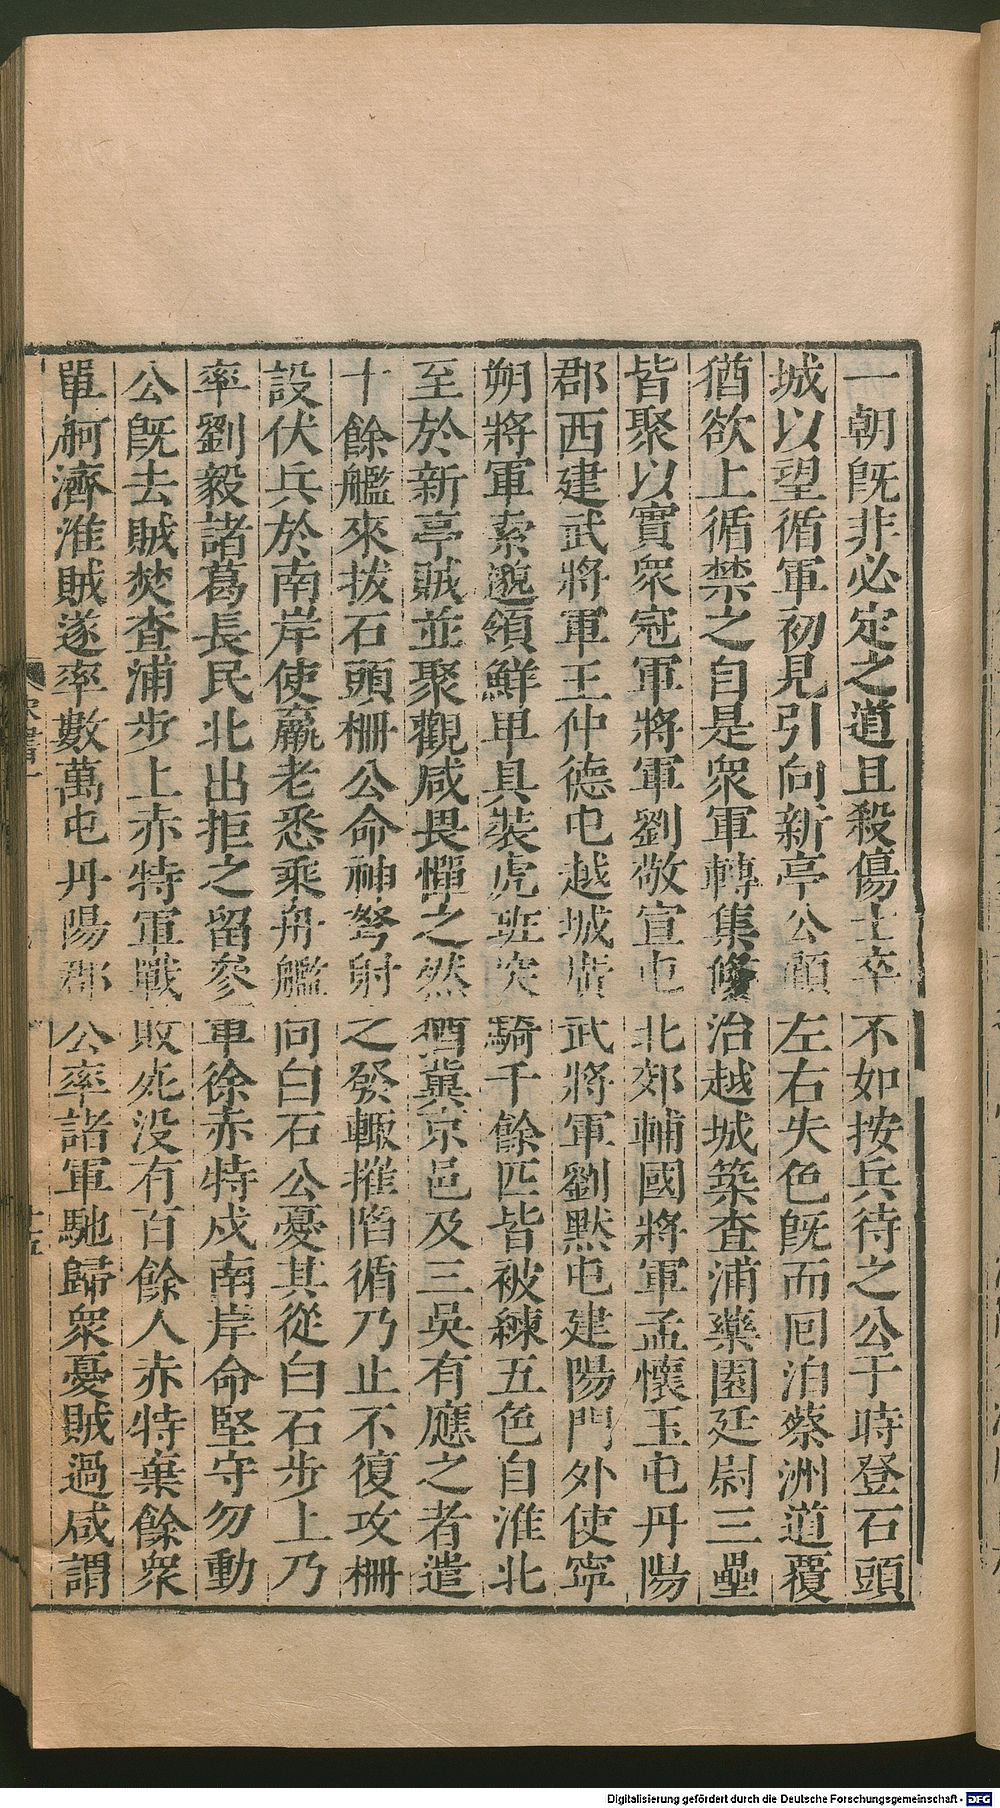 一朝旣非必定之道且殺傷士卒不如按兵待之公于時登石頭
城以望循軍初見引向新亭公顧左右失色旣而囘泊蔡洲道覆
猶欲上循禁之自是衆軍轉集修治越城築查浦藥園廷尉三壘
皆聚以實衆冠軍將軍劉敬宣屯北郊輔國將軍孟懷玉屯丹陽
郡西建武將軍王仲德屯越城廣武將軍劉默屯建陽門外使寧
朔將軍索邈領鮮甲具裝虎班突騎千餘匹皆被練五色自淮北
至於新亭賊並聚觀咸畏憚之然猶冀京邑及三吳有應之者遣
十餘艦來拔石頭柵公命神弩射之發輙摧陷循乃止不復攻柵
設伏兵於南岸使羸老悉乘舟艦向白石公憂其從白石步上乃
率劉毅諸葛長民北出拒之留參軍徐赤特戍南岸命堅守勿動
公旣去賊焚查浦步上赤特軍戰敗死没有百餘人赤特棄餘衆
單舸濟淮賊遂率數萬屯丹陽郡公率諸軍馳歸衆憂賊過咸謂
Digitalisierung gefördert durch die Deutsche Forschungsgemeinschaft - DFG